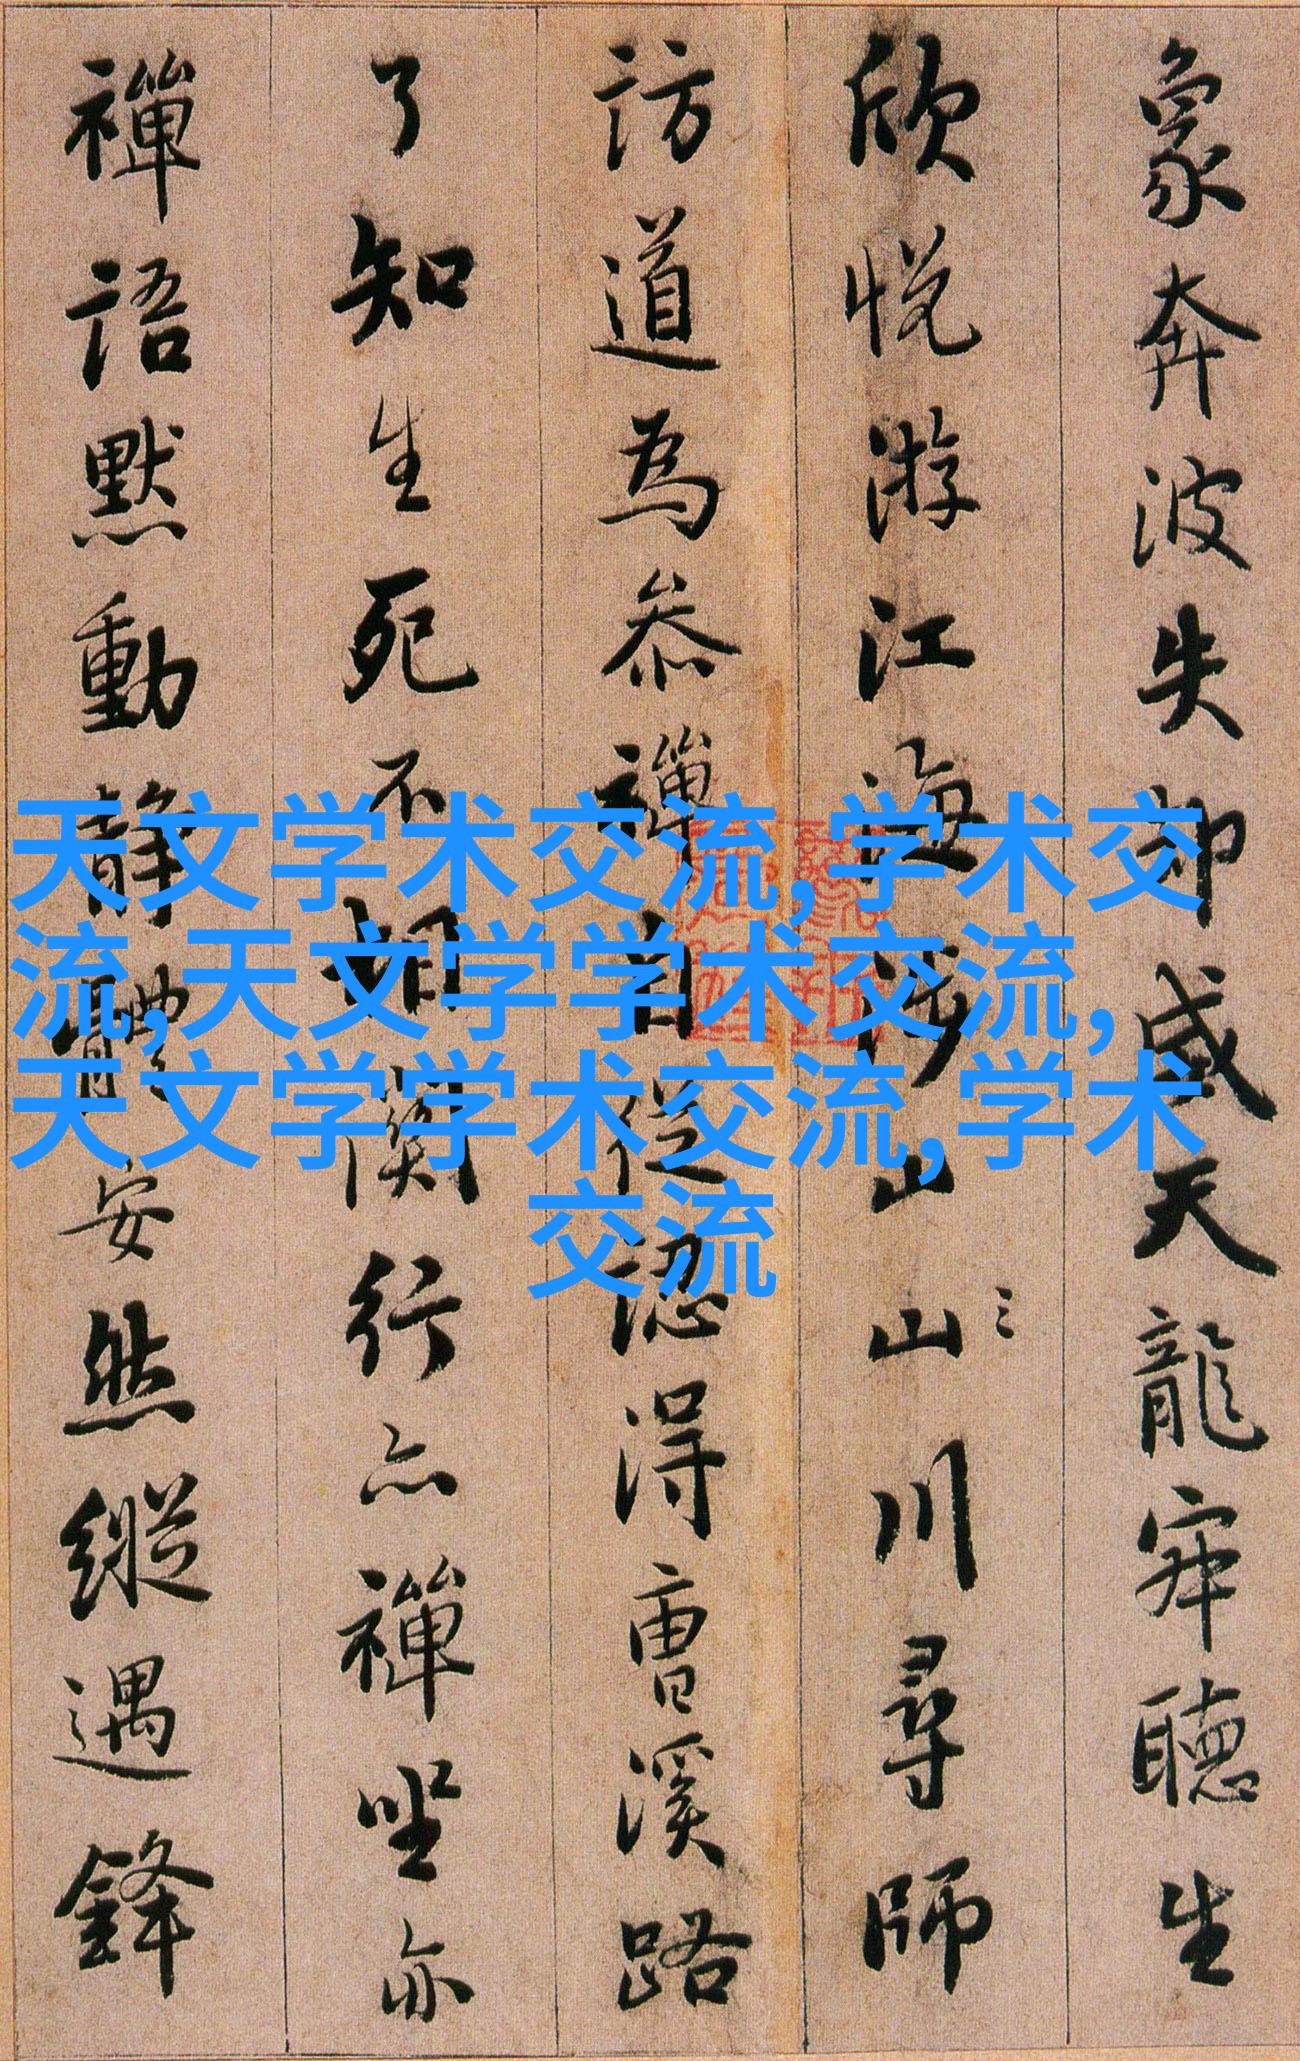 天文学术交流,学术交
流,天文学学术交流,
天文学学术交流,学术
交流
象奔波失却威天龍寂聽生
欣悅游江海涉山山川尋師
訪道為叅禪自從認得曹溪路
了知生死不相關行亦禪坐亦
禪語默動靜體安然縱遇鋒